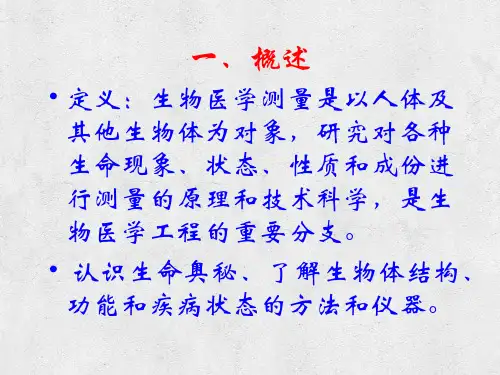 一、概述
• 定义：生物医学测量是以人体及
其他生物体为对象，研究对各种
生命现象、状态、性质和成份进
行测量的原理和技术科学，是生
物医学工程的重要分支。
• 认识生命奥秘、了解生物体结构、
功能和疾病状态的方法和仪器。